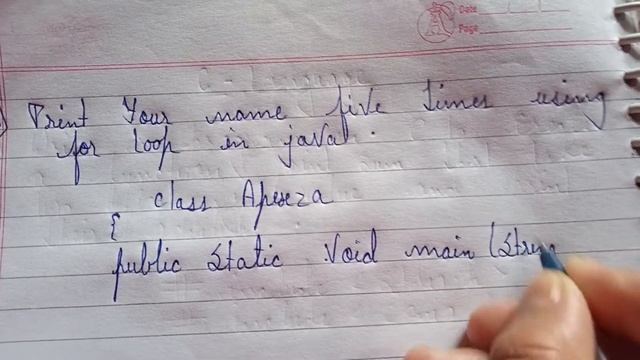 Date
Page
Print Your name five times using
for loop in java.
class Apeseza
{
public static Void main (Strin